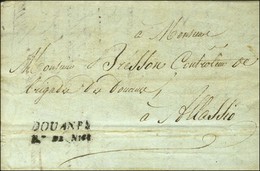 à Monsieur
Monsieur Bresson Contrôleur de
brigade des Douanes
à Allassio
DOUANES
DE NICE